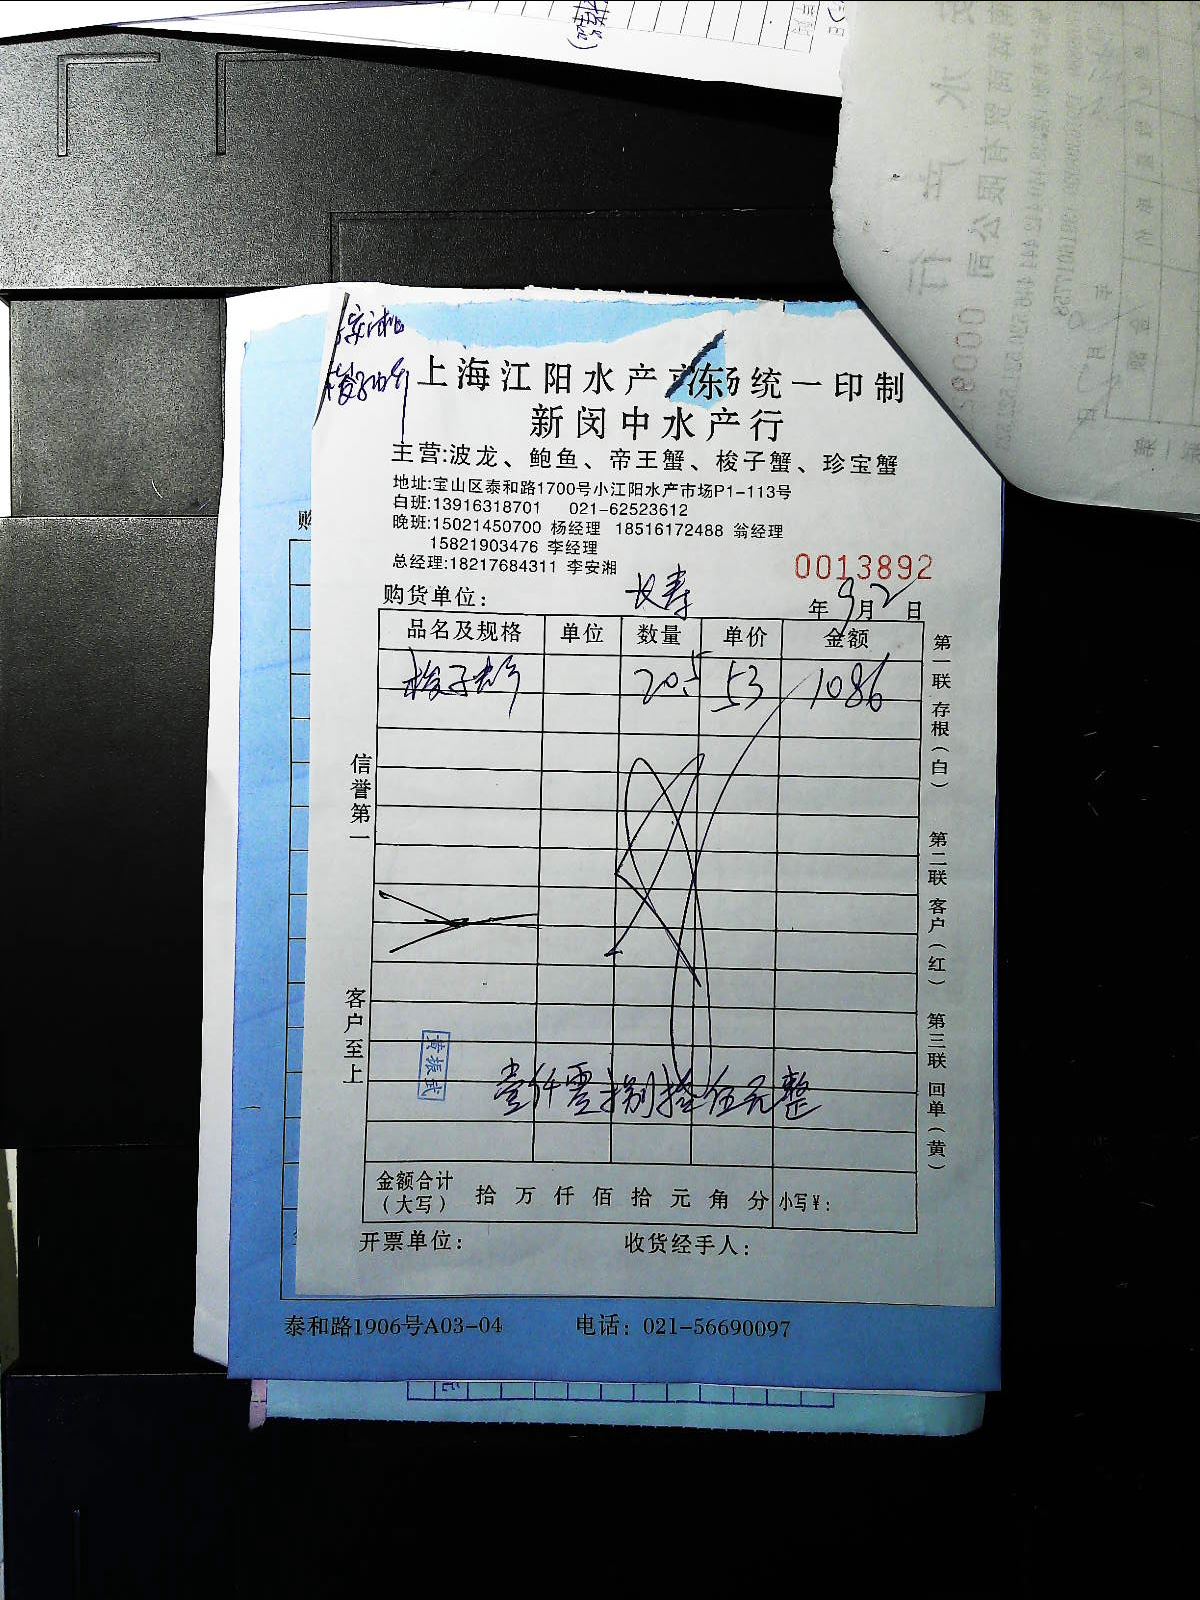 上海江阳水产市场统一印制
新闵中水产行
主营:波龙、鲍鱼、帝王蟹、梭子蟹、珍宝蟹
地址:宝山区泰和路1700号小江阳水产市场P1-113号
白班:13916318701 021-62523612
晚班:15021450700 杨经理 18516172488 翁经理
15821903476 李经理
总经理:18217684311 李安湘
0013892
购货单位: 长寿 年9月2日
品名及规格 单位 数量 单价 金额
梭子蟹 20.5 53 1086
信誉第一
客户至上
第一联 存根(白)
第二联 客户(红)
第三联 回单(黄)
黄振武
壹仟零捌拾伍元整
金额合计(大写) 拾 万 仟 佰 拾 元 角 分 小写¥:
开票单位: 收货经手人:
泰和路1906号A03-04 电话: 021-56690097